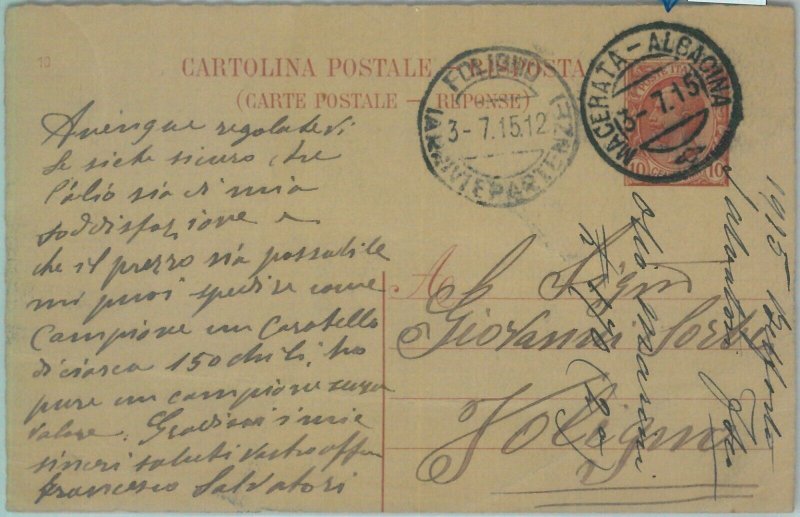 10
CARTOLINA POSTALE RISPOSTA
(CARTE POSTALE — RÉPONSE)
FOLIGNO
3-7.15.12
(ARRIVI E PARTENZE)
MACERATA-ALBACINA
3-7.15
10 10
regolatevi
Se siete sicuro che
l'olio sia di mia
soddisfazione e
che il prezzo sia possabile
mi puoi spedire come
Campione un Caratello
di circa 150 chili,
pure un campione senza
valore. Gradisci i mie
sinceri saluti vostro aff
Francesco Salvatori
A
Giovanni
Foligno
1915
Salvatori